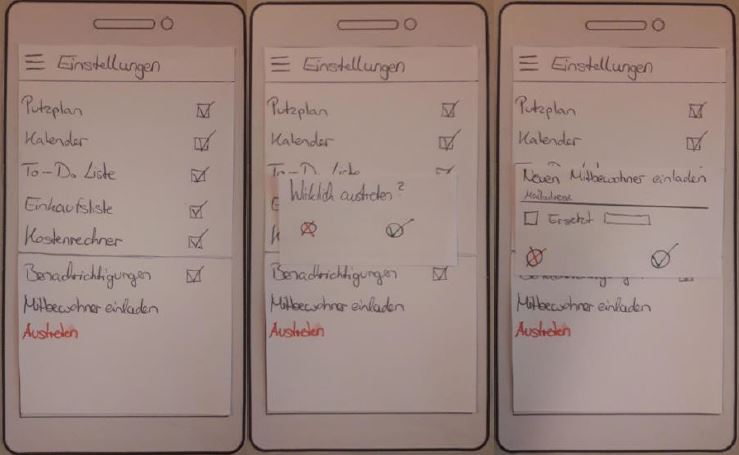 Einstellungen
Putzplan
Kalender
To-Do Liste
Einkaufsliste
Kostenrechner
Benachrichtigungen
Mitbewohner einladen
Austreten
Einstellungen
Putzplan
Kalender
Wirklich austreten?
Benachrichtigungen
Mitbewohner einladen
Austreten
Einstellungen
Putzplan
Kalender
Neuen Mitbewohner einladen
Mailadresse
Ersetzt
Mitbewohner einladen
Austreten